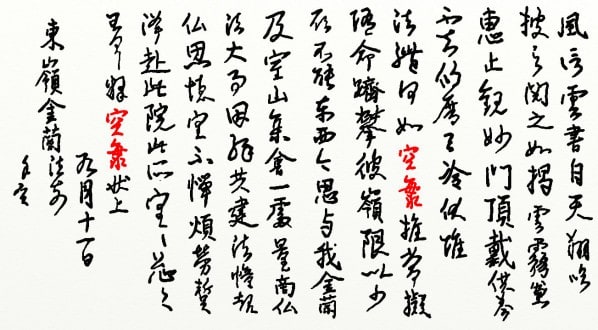 風信雲書自天翔臨
披之閲之如揭雲霧兼
恵止観妙門頂戴供養
不知攸厝已冷伏惟
法體何如空海推常擬
随命躋攀彼嶺限以少
願不能东西今思与我金蘭
及室山集會一處量商仏
法大事因縁共建法幢報
仏恩徳望不憚煩勞蹔
降赴此院此所望々忩々
不具釋空海状上
九月十一日
東嶺金蘭法前
謹空